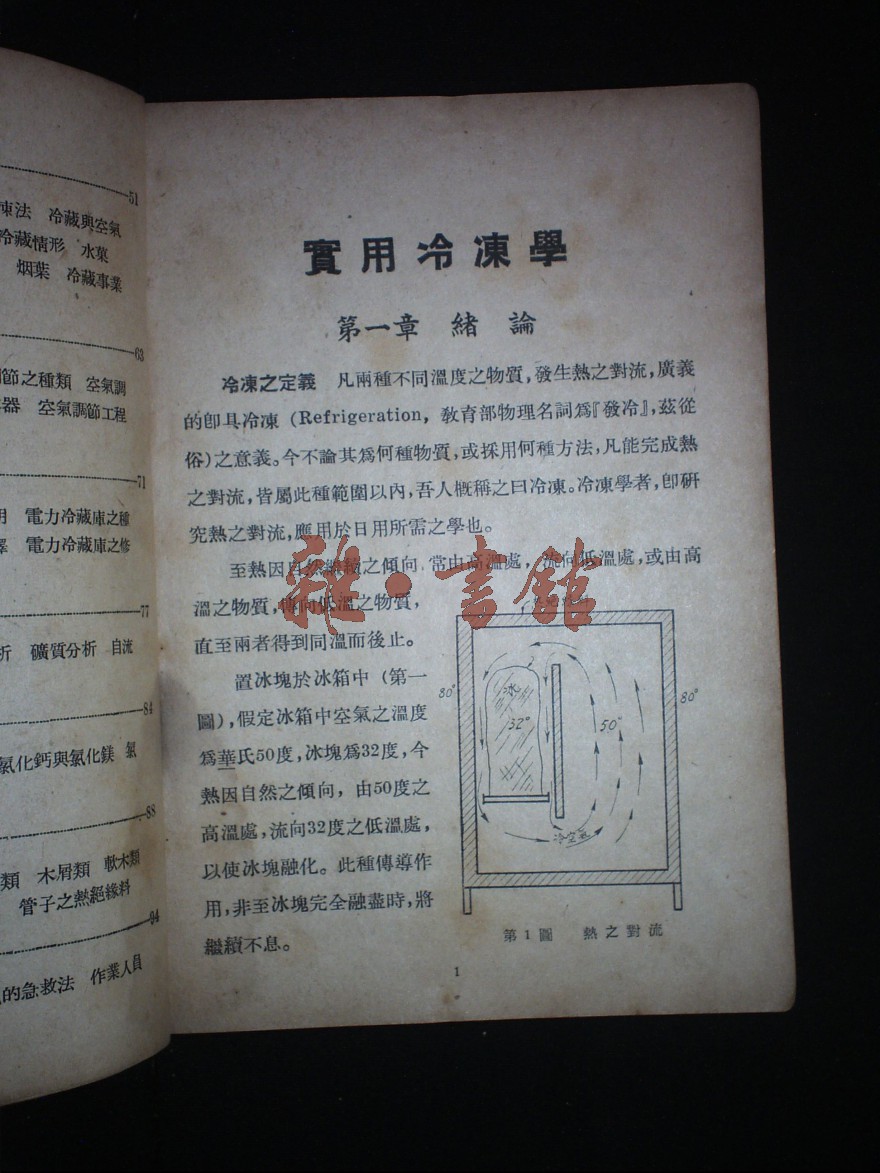 51
凍法 冷藏與空氣
冷藏情形 水菓
烟葉 冷藏事業
63
節之種類 空氣調
器 空氣調節工程
71
用 電力冷藏庫之種
電力冷藏庫之修
77
析 礦質分析 自流
84
氯化鈣與氯化鎂 氯
88
類 木屑類 軟木類
管子之熱絕緣料
94
的急救法 作業人員
實用冷凍學
第一章 緒論
冷凍之定義 凡兩種不同溫度之物質,發生熱之對流,廣義
的卽具冷凍 (Refrigeration, 敎育部物理名詞爲『發冷』,茲從
俗)之意義。今不論其爲何種物質,或採用何種方法,凡能完成熱
之對流,皆屬此種範圍以內,吾人槪稱之曰冷凍。冷凍學者,卽硏
究熱之對流,應用於日用所需之學也。
至熱因自然繼續之傾向,常由高溫處,流向低溫處,或由高
溫之物質,傳向低溫之物質,
直至兩者得到同溫而後止。
置冰塊於冰箱中 (第一
圖),假定冰箱中空氣之溫度
爲華氏50度,冰塊爲32度,今
熱因自然之傾向,由50度之
高溫處,流向32度之低溫處,
以使冰塊融化。此種傳導作
用,非至冰塊完全融盡時,將
繼續不息。
80°
冰
32°
50°
80°
冷空氣
第1圖 熱之對流
1
雜·書館